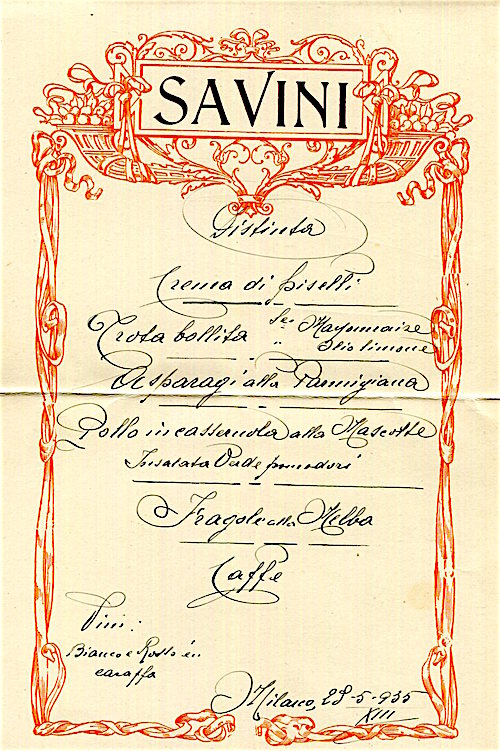 SAVINI
Distinta
Crema di piselli
Trota bollita Sce Mayonnaise
" Olio limone
Asparagi alla Parmigiana
Pollo in casseruola alla Mascotte
Insalata Verde pomodori
Fragole alla Melba
Caffè
Vini:
Bianco e Rosso in
caraffa
Milano, 28-5-935
XIII